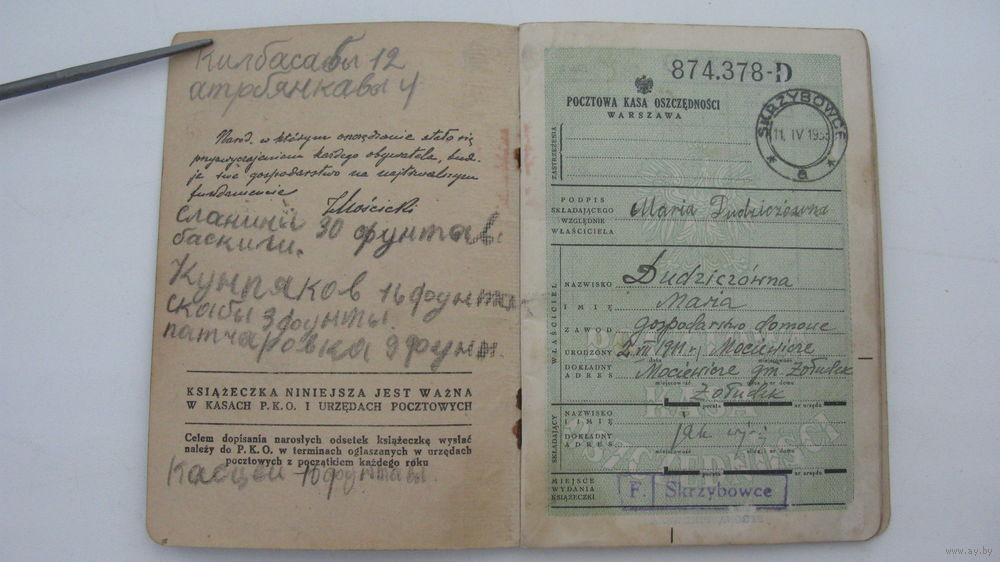 Килбасавы 12
атрбянкавы 4
Naród, w którym oszczędzanie stało się
przyzwyczajeniem każdego obywatela, budu-
je swe gospodarstwo na najtrwalszym
fundamencie
IMościcki
сланини 30 фунтав.
баскили.
Кунпяков 16 фунта
скабы 3 фунты.
патчаровка 9 фунт.
KSIĄŻECZKA NINIEJSZA JEST WAŻNA
W KASACH P.K.O. I URZĘDACH POCZTOWYCH
Celem dopisania narosłych odsetek książeczkę wysłać
należy do P.K.O. w terminach ogłaszanych w urzędach
pocztowych z początkiem każdego roku
10 фунтавы.
874.378-D
POCZTOWA KASA OSZCZĘDNOŚCI
WARSZAWA
SKRZYBOWCE
11. IV 1938
a
ZASTRZEŻENIA
PODPIS
SKŁADAJĄCEGO
WZGLĘDNIE
WŁAŚCICIELA
Maria Dudziczówna
WŁAŚCICIEL
NAZWISKO Dudziczówna
IMIĘ Maria
ZAWÓD gospodarstwo domowe
URODZONY 2 VII 1911 r. Mociewicze
data miejscowość
DOKŁADNY ADRES Mociewicze gm. Żołudek
miejscowość nr domu
Żołudek
poczta nr urzędu
SKŁADAJĄCY
NAZWISKO
I IMIĘ
jak wyżej
DOKŁADNY
ADRES
miejscowość ulica i nr domu
poczta nr urzędu
MIEJSCE
WYDANIA
KSIĄŻECZKI
F. Skrzybowce
www.ay.by